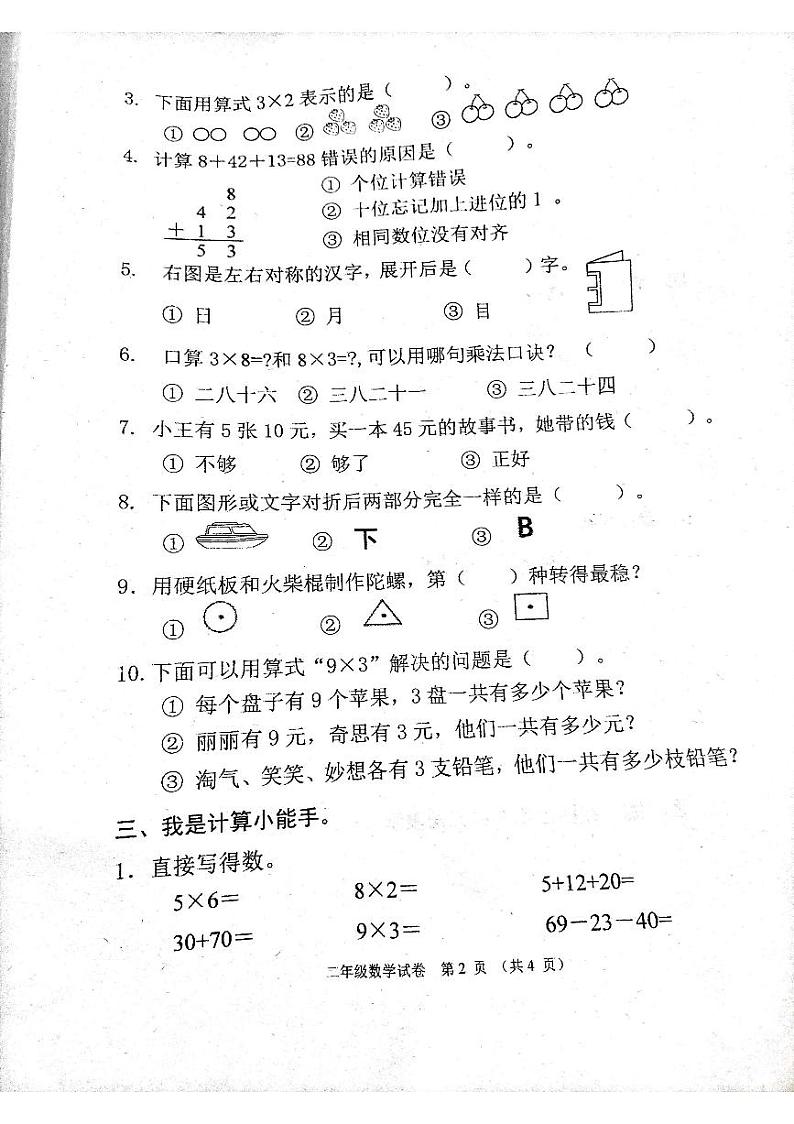 3. 下面用算式3×2表示的是(    )。
① ② ③
4. 计算8+42+13=88错误的原因是(    )。
8 ① 个位计算错误
4 2 ② 十位忘记加上进位的1 。
+ 1 3 ③ 相同数位没有对齐
5 3
5. 右图是左右对称的汉字,展开后是(    )字。
① 日 ② 月 ③ 目
6. 口算3×8=?和8×3=?,可以用哪句乘法口诀? (    )
① 二八十六 ② 三八二十一 ③ 三八二十四
7. 小王有5张10元,买一本45元的故事书,她带的钱(    )。
① 不够 ② 够了 ③ 正好
8. 下面图形或文字对折后两部分完全一样的是(    )。
① ② 下 ③ B
9. 用硬纸板和火柴棍制作陀螺,第(    )种转得最稳?
① ② ③
10. 下面可以用算式“9×3”解决的问题是(    )。
① 每个盘子有9个苹果,3盘一共有多少个苹果?
② 丽丽有9元,奇思有3元,他们一共有多少元?
③ 淘气、笑笑、妙想各有3支铅笔,他们一共有多少枝铅笔?
三、我是计算小能手。
1. 直接写得数。
5×6= 8×2= 5+12+20=
30+70= 9×3= 69-23-40=
二年级数学试卷 第2页 (共4页)